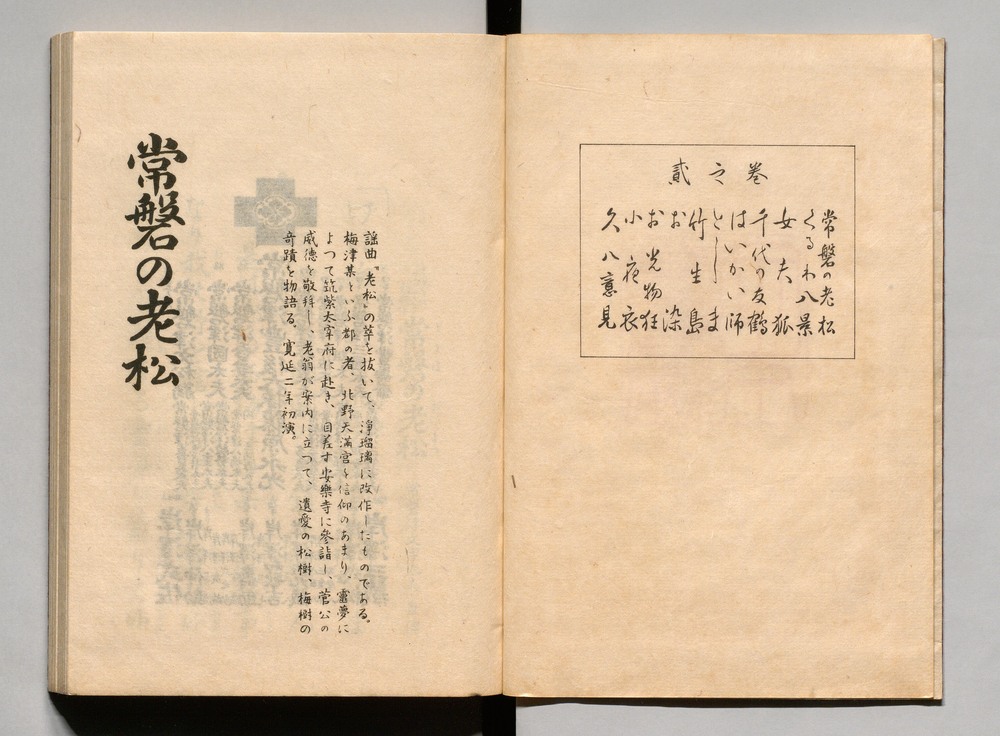 貳之卷
常磐の老松
くるわ八景
女夫狐
千代の友鶴
はいかい師
としま
竹生島
お染
お光物狂
小夜衣
久八意見
謠曲『老松』の萃を拔いて、淨瑠璃に改作したものである。
梅津某といふ都の者、北野天滿宮を信仰のあまり、靈夢に
よつて筑紫太宰府に赴き、目差す安樂寺に參詣し、菅公の
威德を敬拜し、老翁が案内に立つて、遺愛の松樹、梅樹の
奇蹟を物語る。寛延二年初演。
常磐の老松